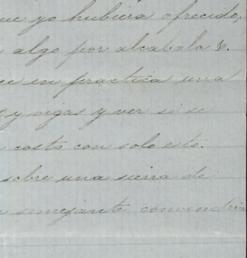 ue yo hubiera ofrecido,
algo por alcabala &.
ce en practica una
y vigas y ver si se
costo con solo esto.
sobre una sierra de
semejante convendria